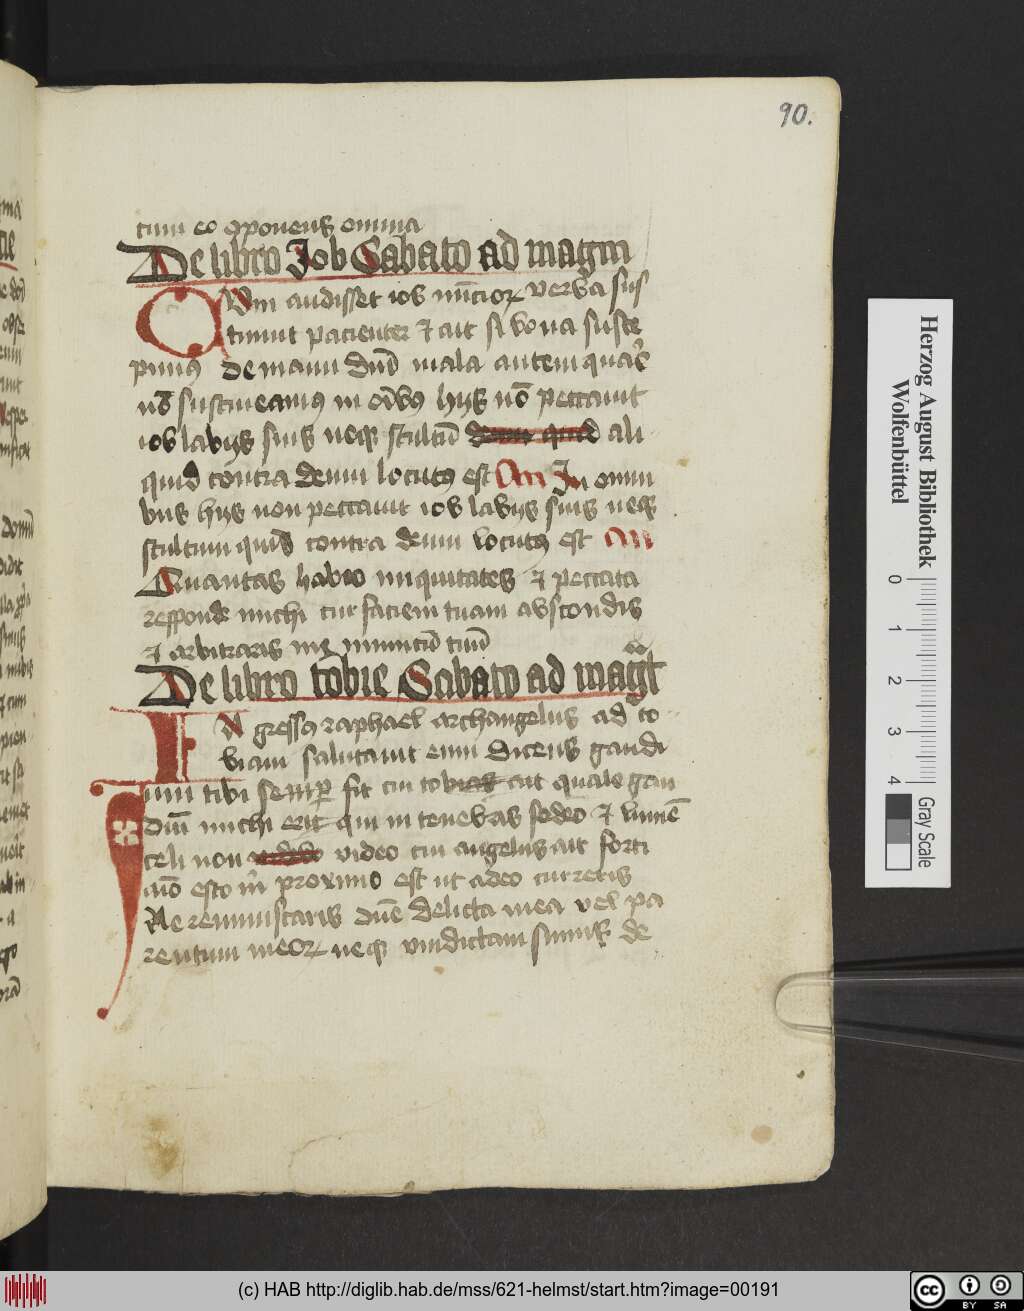 90.
tium eo exponens omnia
De libro Job Sabato ad magm
Cvm audisset iob nuncior verba sus
tinuit pacienter et ait si bona susce
pimus de manu dni mala autem quare
nō sustineamus in oībus hijs nō peccauit
iob labijs suis neque stultū ali
quid contra deum locutus est An In omni
bus hijs non peccauit iob labijs suis neque
stultum quid contra deum locutus est An
Quantas habeo iniquitates et peccata
responde michi cur faciem tuam abscondis
et arbitraris me inimicū tuū
De libro tobie Sabato ad magt
Ingressus raphael archangelus ad to
biam salutauit eum dicens gaudi
um tibi semper sit cui tobias ait quale gau
diū michi erit qui in tenebris sedeo et lumē
celi non video cui angelus ait forti
aīo esto in proximo est ut a deo cureris
Ne reminiscaris dnē delicta mea vel pa
rentum meor neque vindictam sumas de
Herzog August Bibliothek
Wolfenbüttel
0 1 2 3 4
Gray Scale
(c) HAB http://diglib.hab.de/mss/621-helmst/start.htm?image=00191
cc BY SA